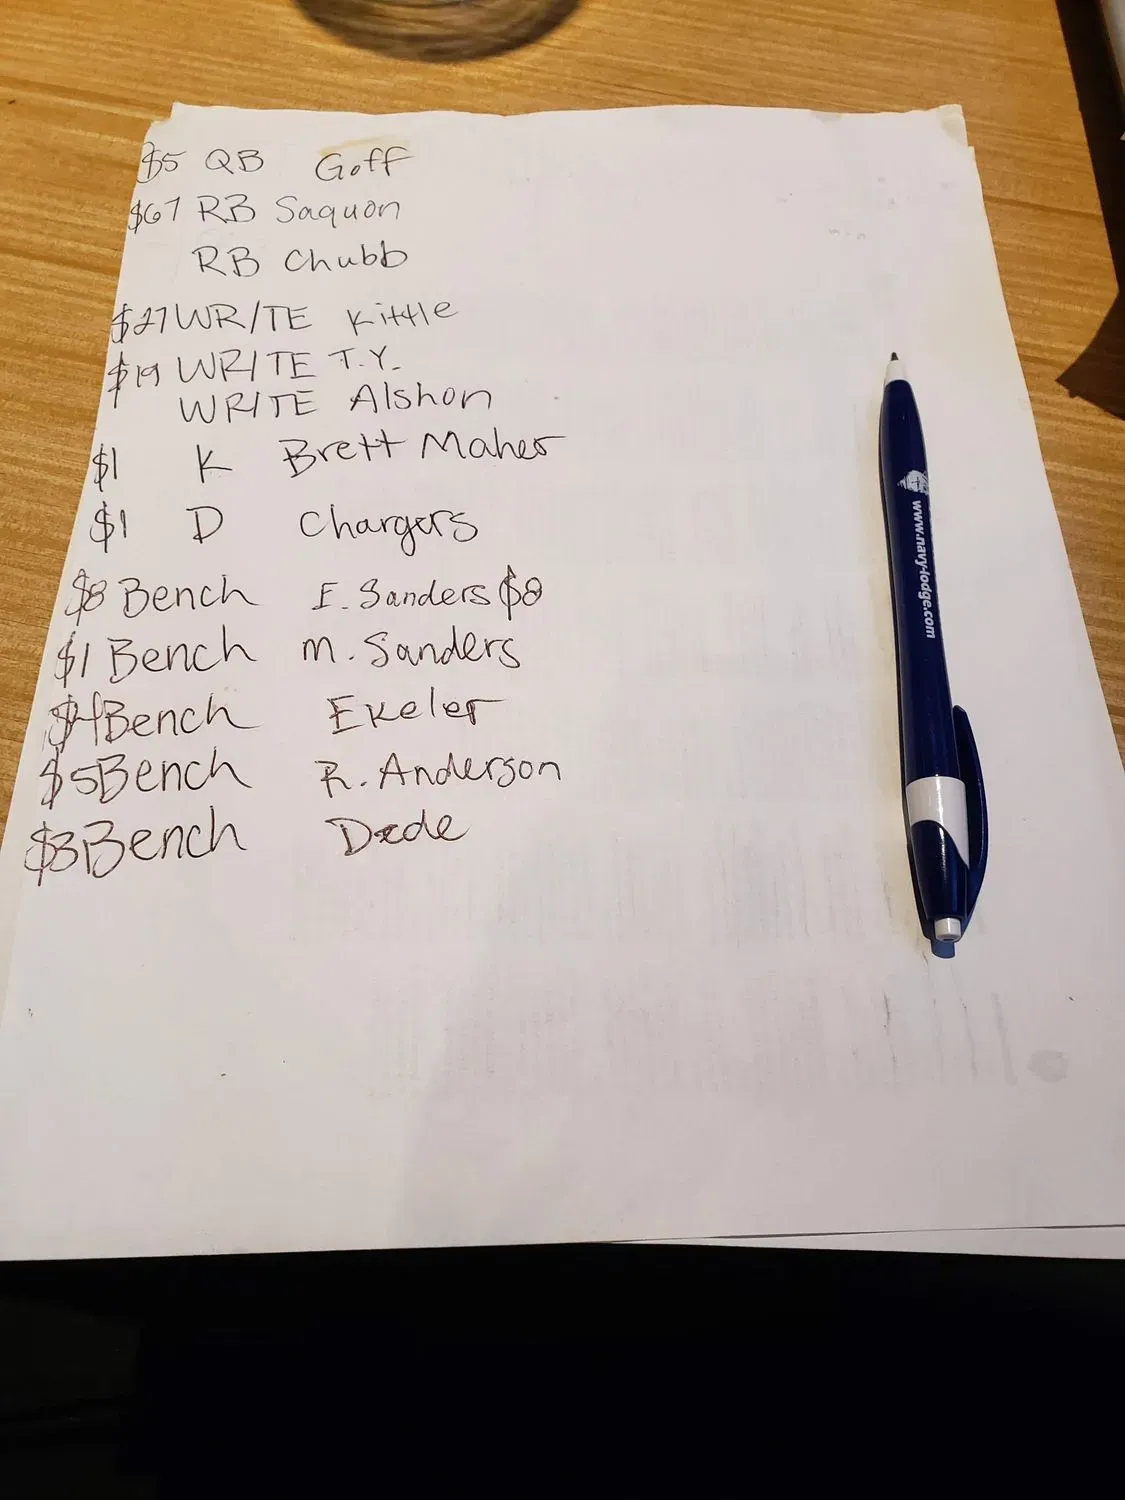 $5 QB Goff
$67 RB Saquon
RB Chubb
$27 WR/TE Kittle
$19 WR/TE T.Y.
WR/TE Alshon
$1 K Brett Maher
$1 D Chargers
$8 Bench E. Sanders $8
$1 Bench M. Sanders
Bench Ekeler
$5 Bench R. Anderson
$3 Bench Dede
www.navy-lodge.com